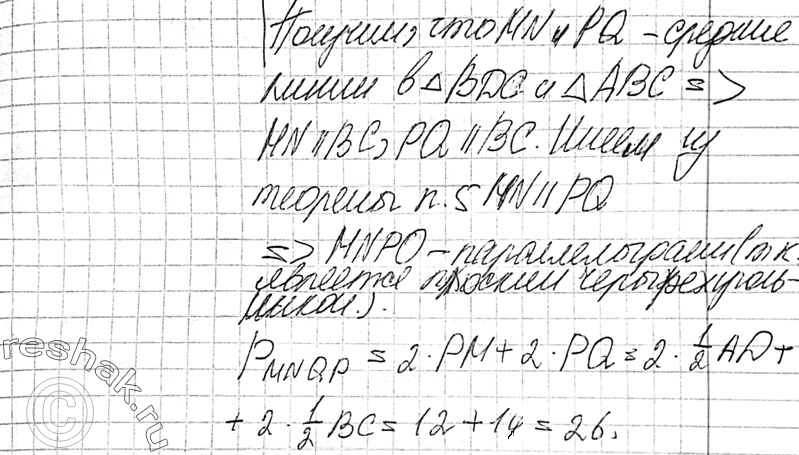 Получим, что MN и PQ – средние
линии в △BDC и △ABC =>
MN || BC, PQ || BC. Имеем из
теоремы п. 5 MN || PQ
=> MNPQ – параллелограмм (т.к.
является плоским четырехуголь-
ником).
P_MNQP = 2 · PM + 2 · PQ = 2 · 1/2 AD +
+ 2 · 1/2 BC = 12 + 14 = 26.
reshak.ru
©